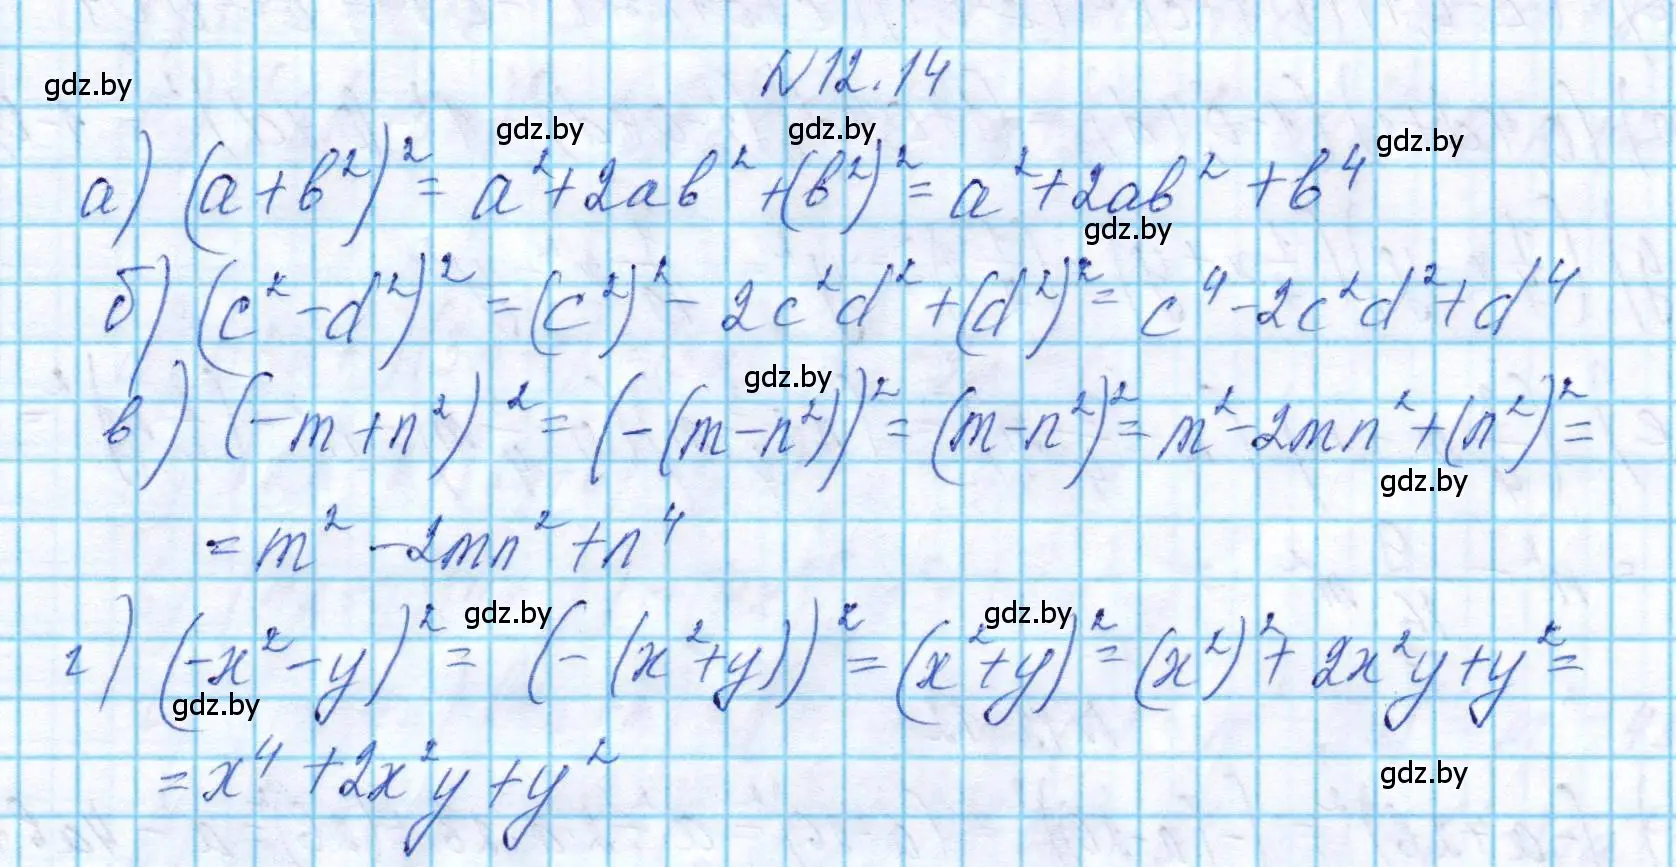 N 12.14
gdz.by
gdz.by gdz.by gdz.by
а) (a+b²)² = a²+2ab²+(b²)² = a²+2ab²+b⁴
gdz.by
б) (c²-d²)² = (c²)²-2c²d²+(d²)² = c⁴-2c²d²+d⁴
gdz.by
в) (-m+n²)² = (-(m-n²))² = (m-n²)² = m²-2mn²+(n²)² =
gdz.by
= m²-2mn²+n⁴
gdz.by gdz.by
г) (-x²-y)² = (-(x²+y))² = (x²+y)² = (x²)²+2x²y+y² =
gdz.by
= x⁴+2x²y+y²
gdz.by